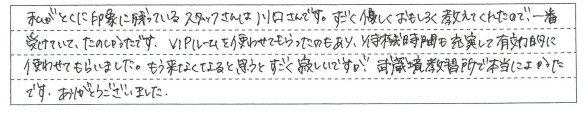 私がとくに印象に残っているスタッフさんは川口さんです。すごく優しくおもしろく教えてくれたので、一番
受けていて、たのしかったです。VIPルームを使わせてもらったのもあり、待機時間も充実して有効的に
使わせてもらいました。もう来なくなると思うとすごく寂しいですが、武蔵境教習所で本当によかった
です。ありがとうございました。